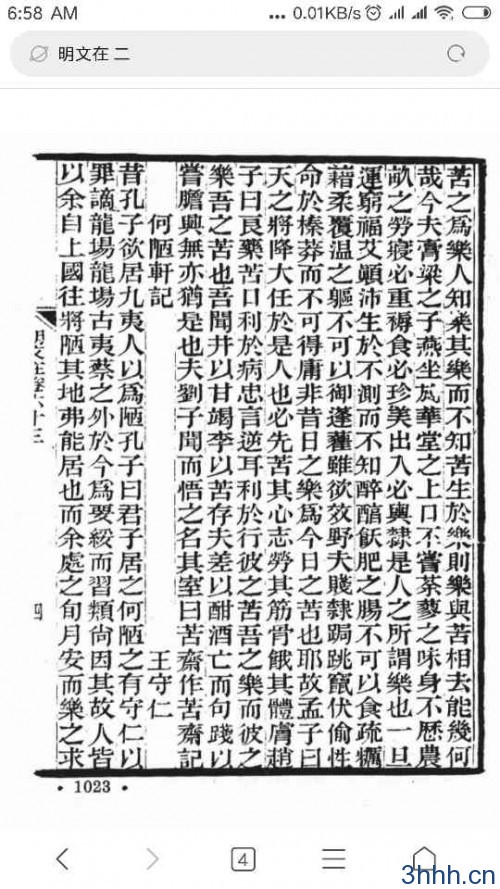 6:58 AM
... 0.01KB/s
明文在 二
苦之爲樂人知樂其樂而不知苦生於樂則樂與苦相去能幾何
哉今夫膏梁之子燕坐於華堂之上口不嘗荼蓼之味身不歷農
畝之勞寢必重褥食必珍美出入必輿隸是人之所謂樂也一旦
運窮福艾顚沛生於不測而不知醉醲飫肥之腸不可以食疏糲
藉柔覆温之軀不可以御蓬藋雖欲效野夫賤隸跼跳竄伏偷性
命於榛莽而不可得庸非昔日之樂爲今日之苦也耶故孟子曰
天之將降大任於是人也必先苦其心志勞其筋骨餓其體膚趙
子曰良藥苦口利於病忠言逆耳利於行彼之苦吾之樂而彼之
樂吾之苦也吾聞井以甘竭李以苦存夫差以酣酒亡而句踐以
嘗膽興無亦猶是也夫劉子聞而悟之名其室曰苦齋作苦齋記
何陋軒記 王守仁
昔孔子欲居九夷人以爲陋孔子曰君子居之何陋之有守仁以
罪謫龍場龍場古夷蔡之外於今爲要綏而習類尚因其故人皆
以余自上國往將陋其地弗能居也而余處之旬月安而樂之求
明文在卷六十三 四
• 1023 •
4
3hhh.cn